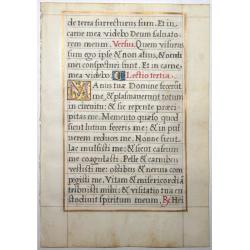 de terra surrecturus sum. Et in
carne mea videbo Deum salvato
rem meum. Versus. Quem visurus
sum ego ipse & non alius, & oculi
mei conspecturi sunt. Et in carne
mea videbo. Lectio tertia.
Manus tuæ Domine fecerūt
me, & plasmaverunt totum
in circuitu; & sic repente præci-
pitas me. Memento quæso quod
sicut lutum feceris me; & in pul
verem reduces me. Nonne sicut
lac mulsisti me; & sicut caseum
me coagulasti. Pelle & carnibus
vestisti me: ossibus & nervis com
pegisti me. Vitam & misericordiā
tribuisti mihi; & visitatio tua cu
stodivit spiritum meum. ℞. Hei